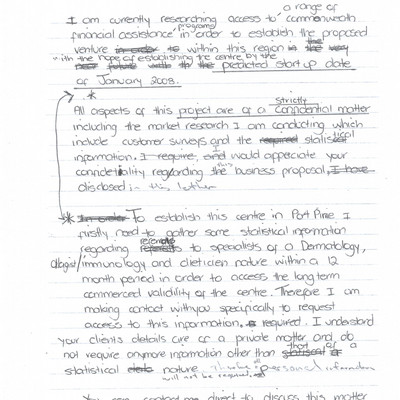 a range of
I am currently researching access to commonwealth
programs
financial assistance in order to establish the proposed
venture in order to within this region in the very
with the hope of establishing the centre by the
near future with to the predicted start up date
of January 2008.
*
strictly
All aspects of this project are of a confidential matter
including the market research I am conducting which
include customer surveys and the required statistical
information. I require, and would appreciate your
this
confidetiality regarding the business proposal, I have
disclosed in this letter
* In order To establish this centre in Port Pirie I
firstly need to gather some statistical information
referrals
regarding to specialists of a Dermatology,
allergist/immunology and dietician nature within a 12
month period in order to access the long term
commerced validity of the centre. Therefore I am
making contact with you specifically to request
access to this information. required. I understand
your clients details are of a private matter and do
that of a
not require anymore information other than statistical of
statistical data nature. personal information
will not be required.
You can contact me direct to discuss this matter